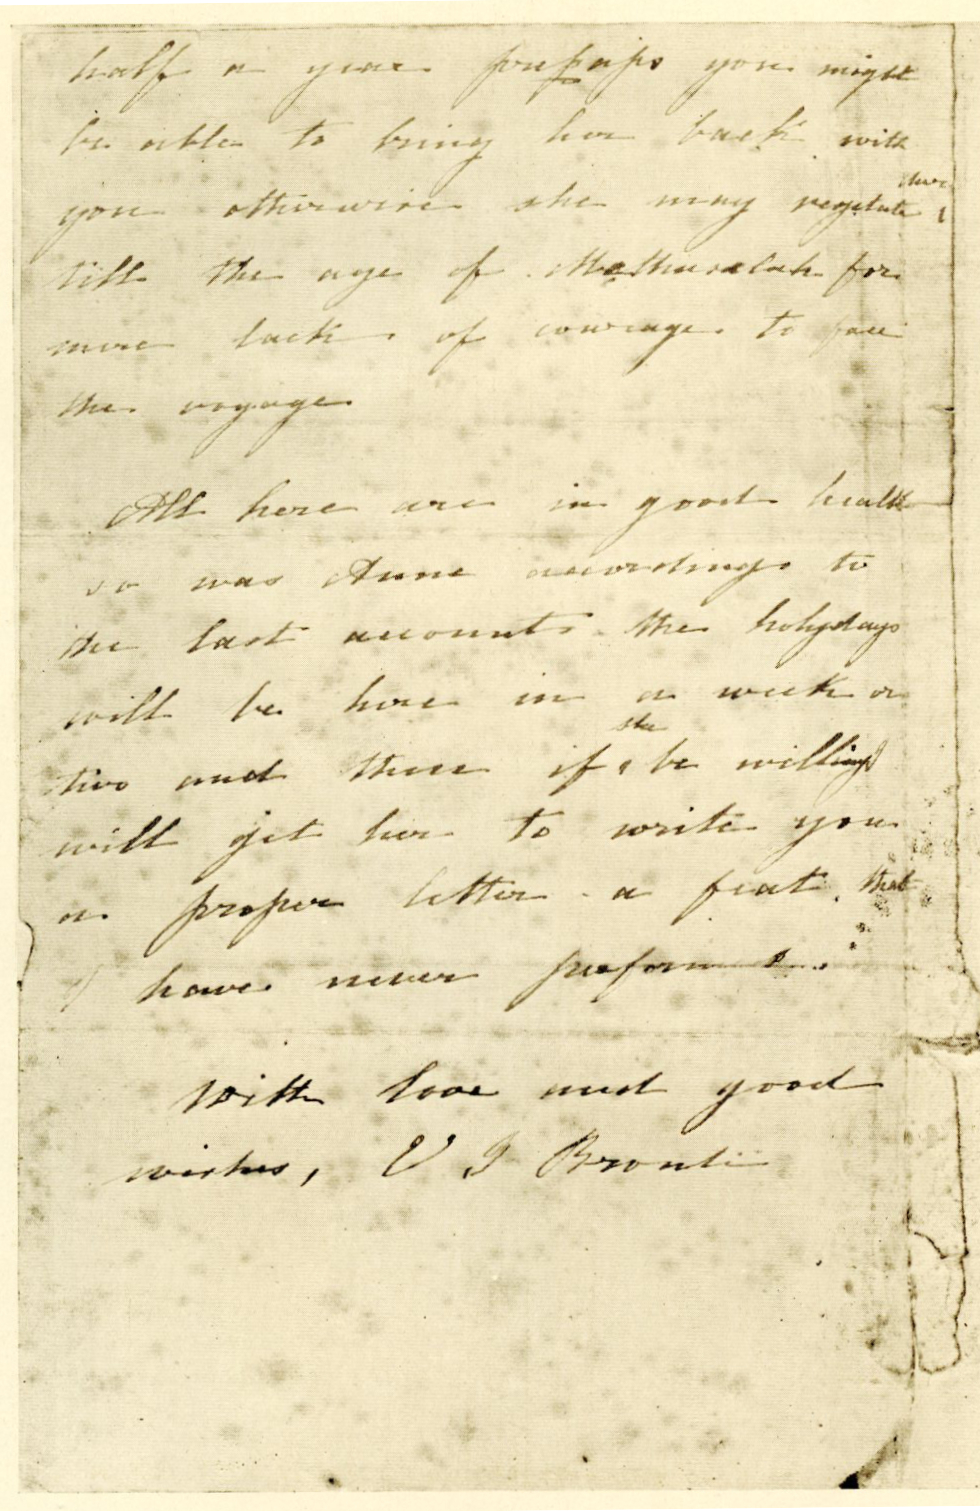 half a year prehaps you might
be able to bring her back with
you otherwise she may vegetate there
till the age of Methuselah for
mere lack of courage to face
the voyage.
All here are in good health
so was Anne according to
the last accounts. the holydays
will be here in a week or
two and then if she be willing I
will get her to write you
a proper letter - a feat that
I have never performed.
With love and good
wishes, E J Brontë